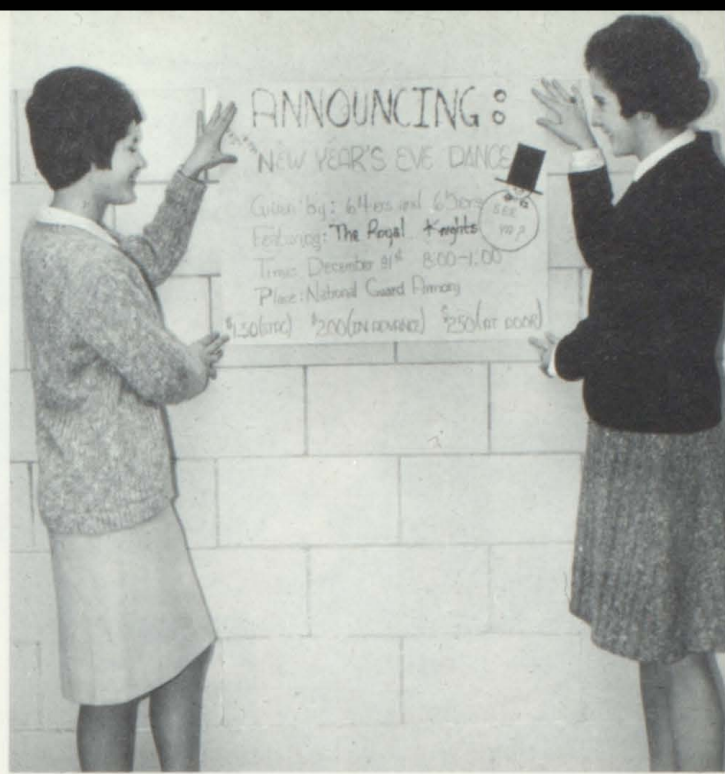 ANNOUNCING:
NEW YEAR'S EVE DANCE
Given by: 64ers and 65ers
Featuring: The Royal Knights
SEE
YA?
Time: December 31st 8:00-1:00
Place: National Guard Armory
$1.50(STAG) $2.00(IN ADVANCE) $2.50(AT DOOR)